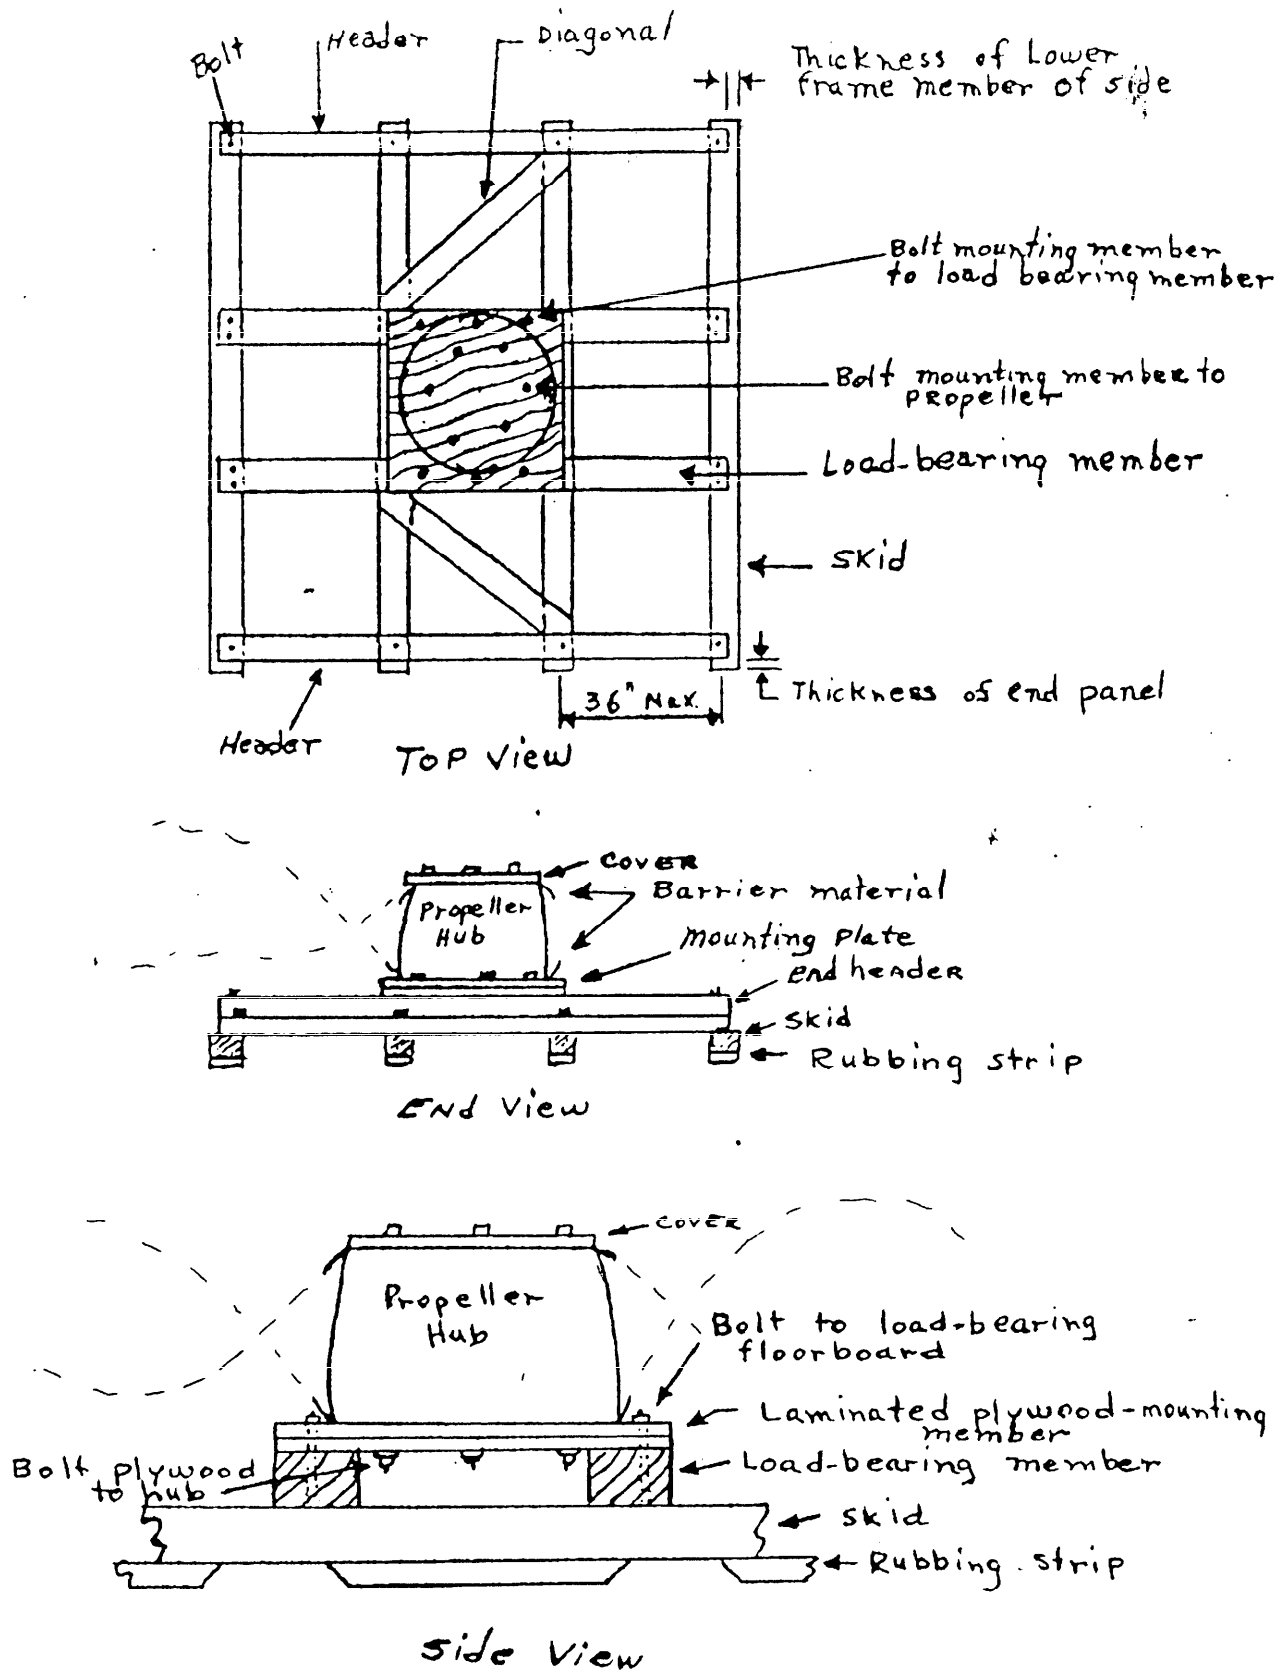 Bolt
Header
Diagonal
Thickness of Lower
frame member of side
Bolt mounting member
to load bearing member
Bolt mounting member to
propeller
Load-bearing member
Skid
36" Max.
Thickness of end panel
Header
Top View
Cover
Barrier material
Propeller
Hub
Mounting Plate
end header
Skid
Rubbing strip
End View
Cover
Propeller
Hub
Bolt to load-bearing
floorboard
Laminated plywood-mounting
member
Bolt plywood
to hub
Load-bearing member
Skid
Rubbing strip
Side View